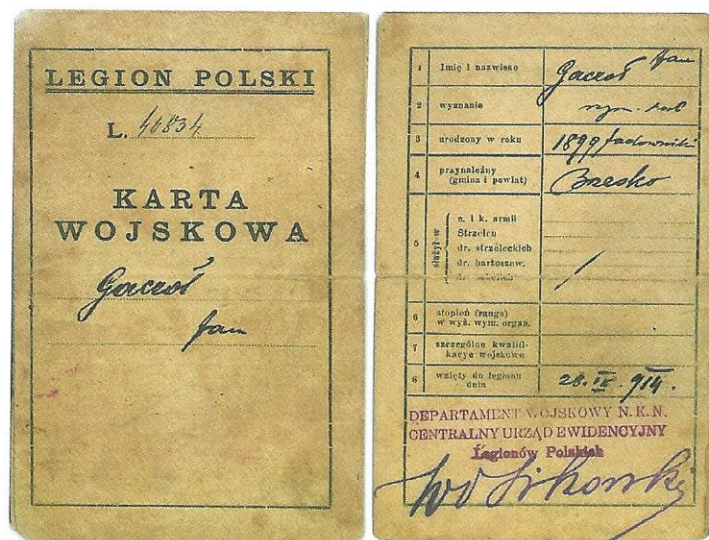 LEGION POLSKI
L. 40834
KARTA
WOJSKOWA
Gaczoł
Jan
1 Imię i nazwisko Gaczoł Jan
2 wyznanie rzym. kat
3 urodzony w roku 1899 Jadowniki
4 przynależny
(gmina i powiat) Brzesko
5 służył w
c. i k. armii
Strzelcu
dr. strzeleckich
dr. bartoszow.
dr.
6 stopień (ranga)
w wyż. wym. organ.
7 szczególne kwalifi-
kacye wojskowe
8 wzięty do legionu
dnia 28. IX. 914.
DEPARTAMENT WOJSKOWY N. K. N.
CENTRALNY URZĄD EWIDENCYJNY
Legionów Polskich